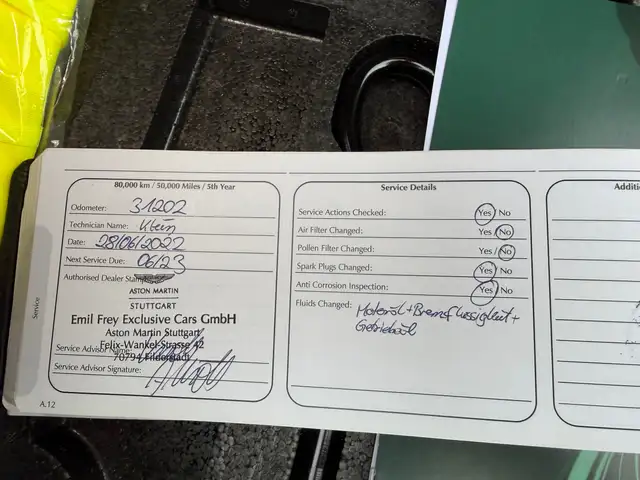 80,000 km / 50,000 Miles / 5th Year
Odometer: 31202
Technician Name: Klein
Date: 28/06/2022
Next Service Due: 06/23
Authorised Dealer Stamp
ASTON MARTIN
STUTTGART
Emil Frey Exclusive Cars GmbH
Aston Martin Stuttgart
Felix-Wankel-Strasse 42
Service Advisor Name:
70794 Filderstadt
Service Advisor Signature:
A.12
Service
Service Details
Service Actions Checked: Yes / No
Air Filter Changed: Yes / No
Pollen Filter Changed: Yes / No
Spark Plugs Changed: Yes / No
Anti Corrosion Inspection: Yes / No
Fluids Changed: Motoröl + Bremsflüssigkeit +
Getriebeöl